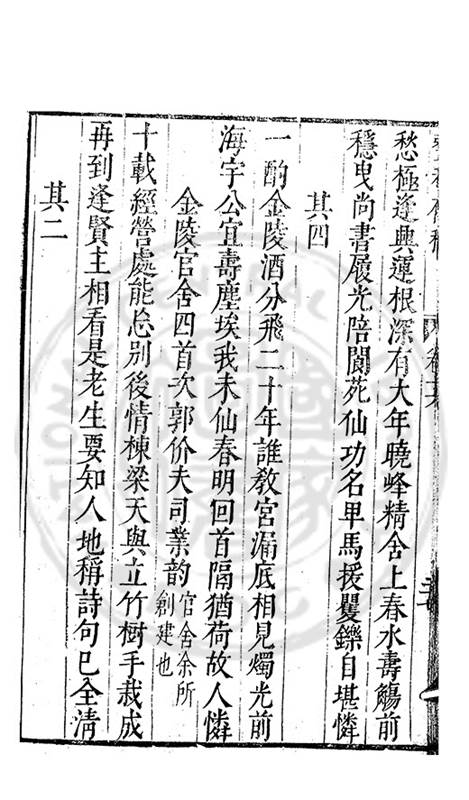 愁極逢興運根深有大年曉峰精舍上春水壽觴前
穩曳尚書履光陪閬苑仙功名卑馬援矍鑠自堪憐
其四
一酌金陵酒分飛二十年誰教宮漏底相見燭光前
海宇公宜壽塵埃我未仙春明回首隔猶荷故人憐
金陵官舍四首次郭价夫司業韵官舍余所創建也
十載經營處能忘別後情棟梁天與立竹樹手栽成
再到逢賢主相看是老生要知人地稱詩句已全清
其二